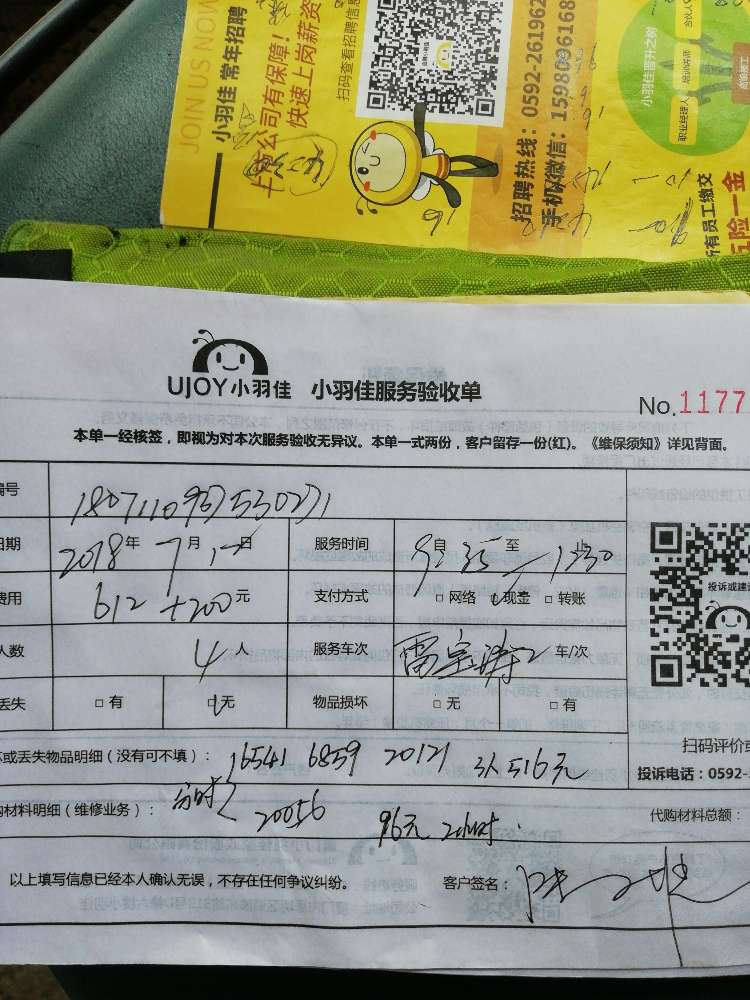 JOIN US NOW
小羽佳 常年招聘
公司有保障！
快速上岗薪资
扫码查看招聘信息
招聘热线：0592-261962
手机/微信：1598096168
小羽佳晋升之树
职业经理人
培训讲师
合伙人
所有员工缴交
五险一金
UJOY小羽佳 小羽佳服务验收单
No.1177
本单一经核签，即视为对本次服务验收无异议。本单一式两份，客户留存一份(红)。《维保须知》详见背面。
编号
日期 2018年 7月 日 服务时间 自 9:35 至 止
费用 612+200元 支付方式 □网络 □现金 □转账
人数 4人 服务车次 2车/次
丢失 □有 □无 物品损坏 □无 □有
投诉或建议
坏或丢失物品明细（没有可不填）：16541 6859 20121 3人516元
购材料明细（维修业务）： 20056 96元 2小时
扫码评价或
投诉电话：0592-
代购材料总额：
以上填写信息已经本人确认无误，不存在任何争议纠纷。 客户签名：